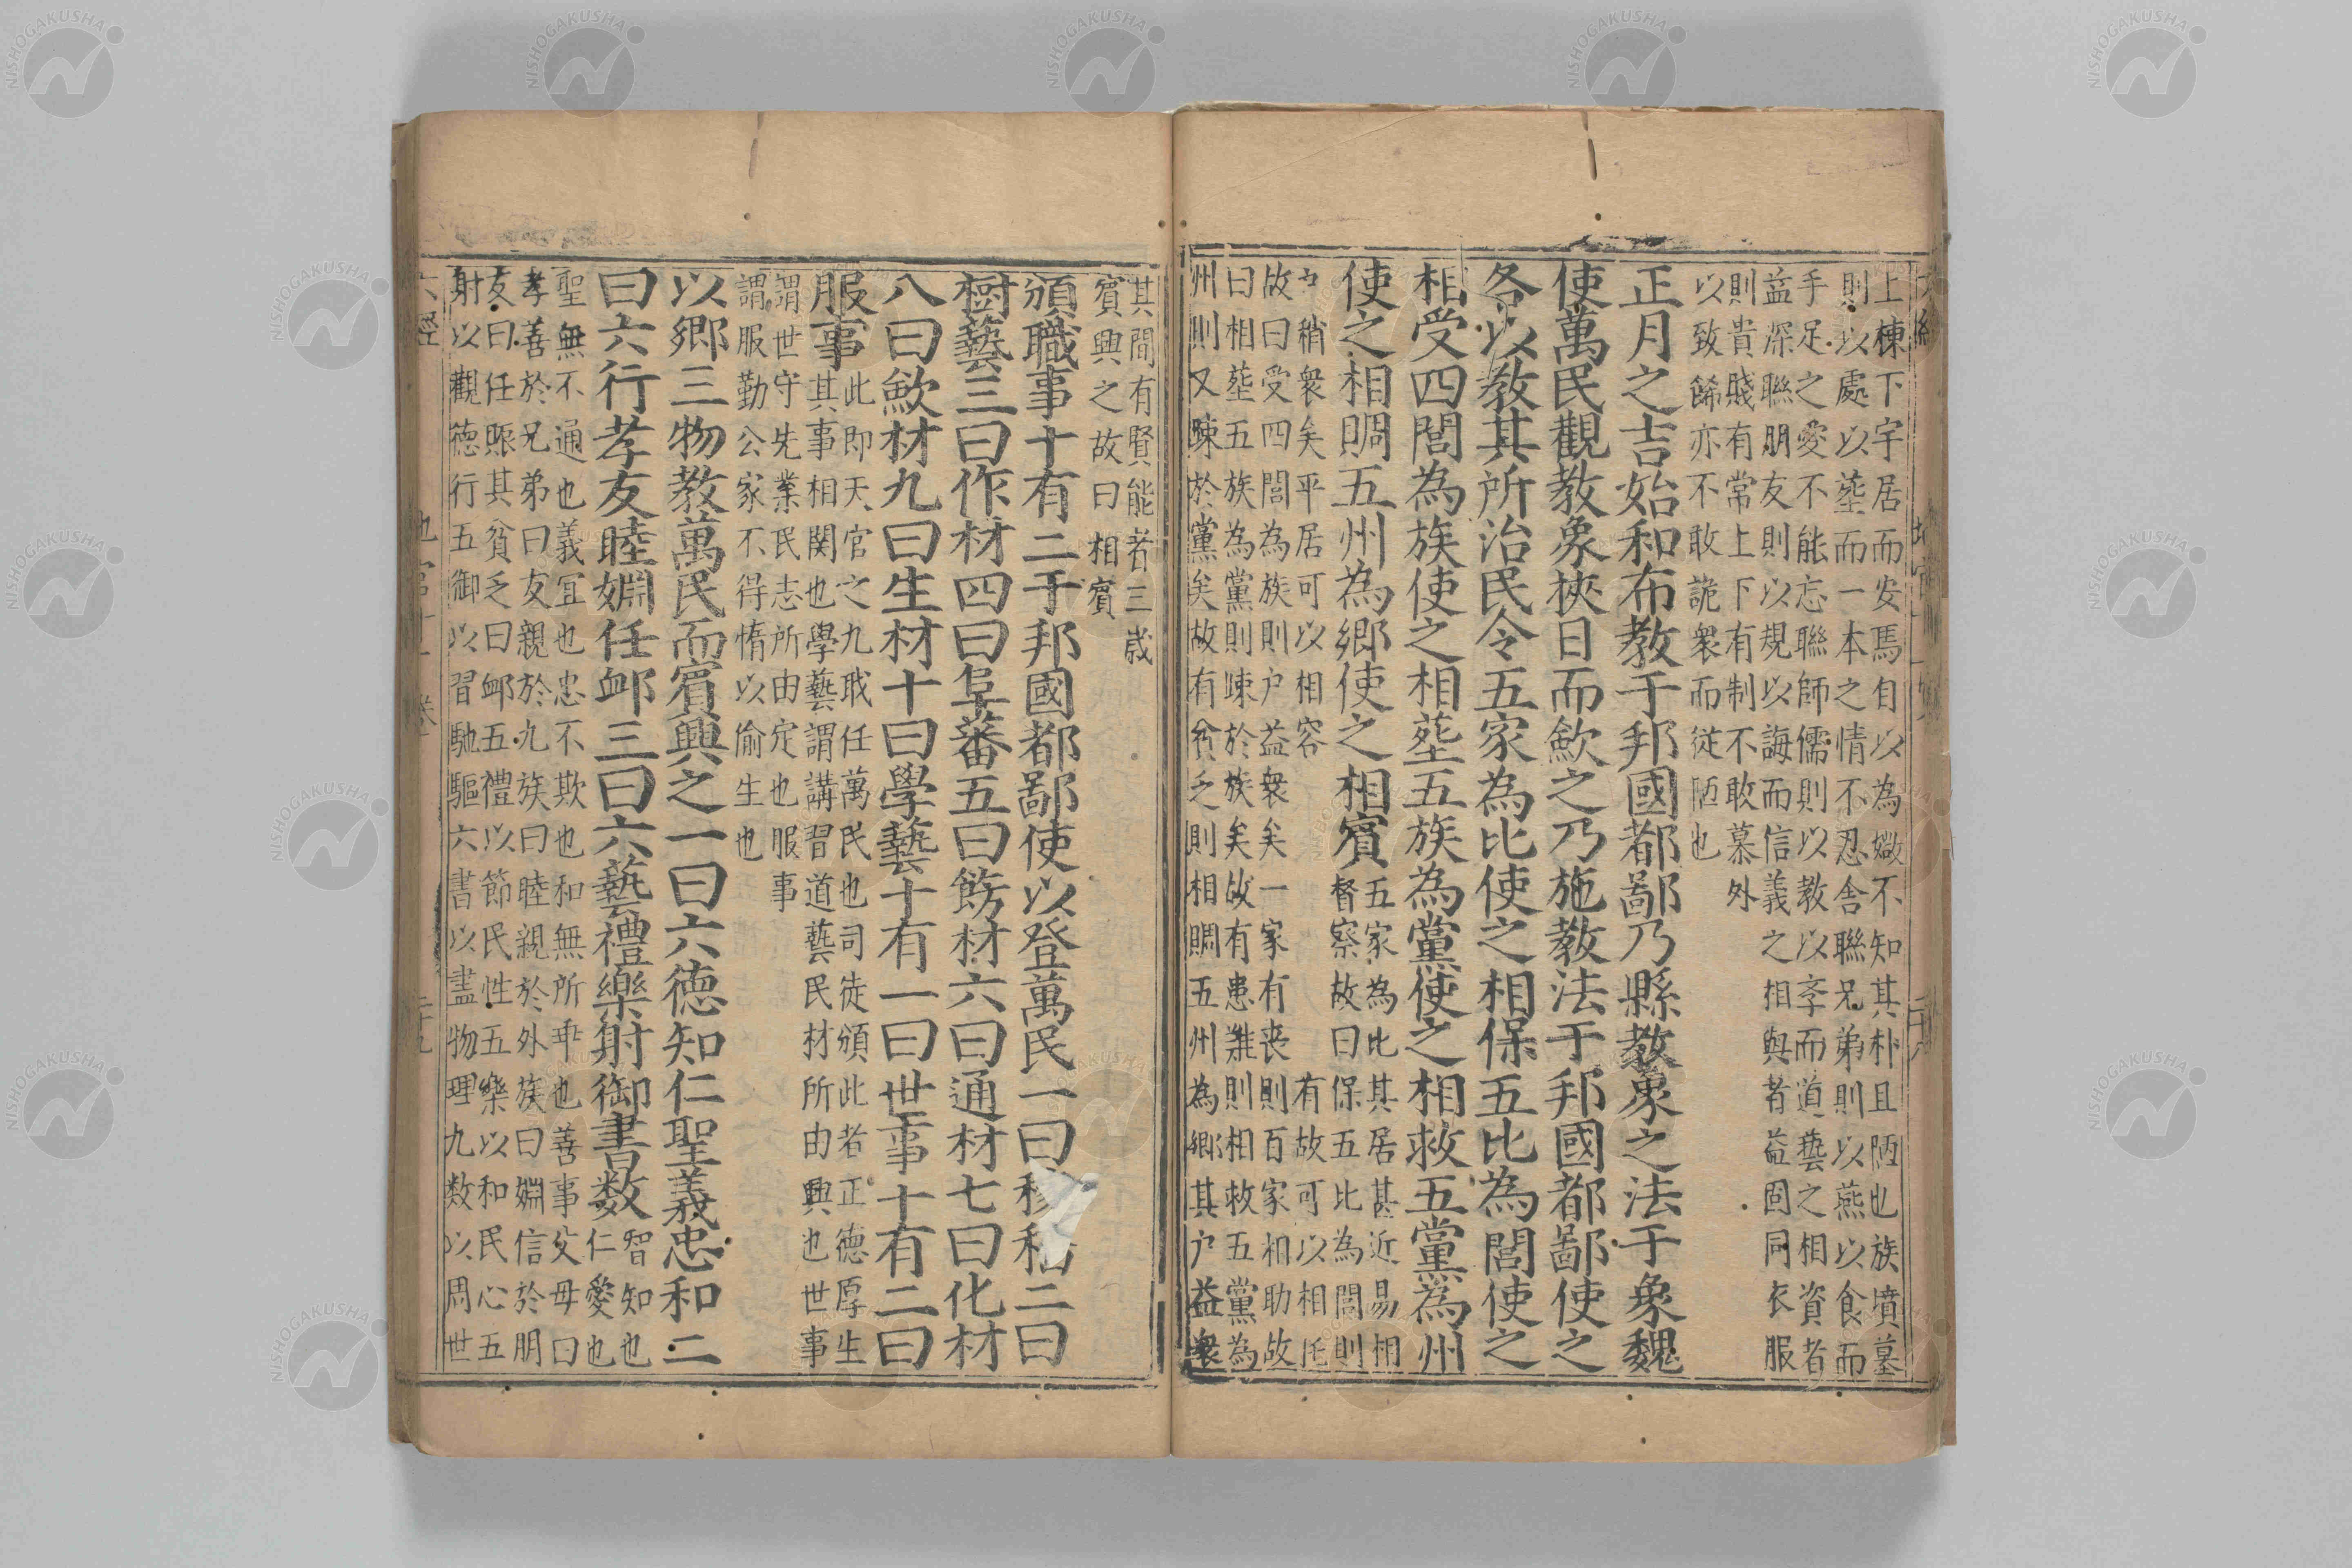 上棟下宇居而安焉自以為媺不知其朴且陋也族墳墓
則以處以塟而一本之情不忍舍聯兄弟則以燕以食而
手足之愛不能忘聯師儒則以教以孝而道藝之相資者
益深聯朋友則以規以誨而信義之相與者益固同衣服
則貴賤有常上下有制不敢慕外
以致餙亦不敢詭衆而従陋也
正月之吉始和布教于邦國都鄙乃縣教象之法于象魏
使萬民觀教象挾日而歛之乃施教法于邦國都鄙使之
各以教其所治民令五家為比使之相保五比為閭使之
相受四閭為族使之相塟五族為黨使之相救五黨為州
使之相賙五州為鄉使之相賓
五家為比其居甚近易相
督察故曰保五比為閭則
稍衆矣平居可以相容有故可以相
故曰受四閭為族則户益衆矣一家有丧則百家相助故
曰相塟五族為黨則踈於族矣故有患難則相救五黨為
州則又踈於黨矣故有貧乏則相賙五州為鄉其户益衆
其間有賢能者三歲
賓興之故曰相賓
頒職事十有二于邦國都鄙使以登萬民一曰稼穡二曰
樹藝三曰作材四曰阜蕃五曰餝材六曰通材七曰化材
八曰歛材九曰生材十曰學藝十有一曰世事十有二曰
服事
此即天官之九職任萬民也司徒頒此者正德厚生
其事相関也學藝謂講習道藝民材所由興也世事
謂世守先業民志所由定也服事
謂服勤公家不得惰以偷生也
以鄉三物教萬民而賓興之一曰六德知仁聖義忠和二
曰六行孝友睦婣任卹三曰六藝禮樂射御書数
智知也
仁愛也
聖無不通也義宜也忠不欺也和無所乖也善事父母曰
孝善於兄弟曰友親於九族曰睦親於外族曰婣信於朋
友曰任賑其貧乏曰卹五禮以節民性五樂以和民心五
射以觀德行五御以習馳驅六書以盡物理九数以周世